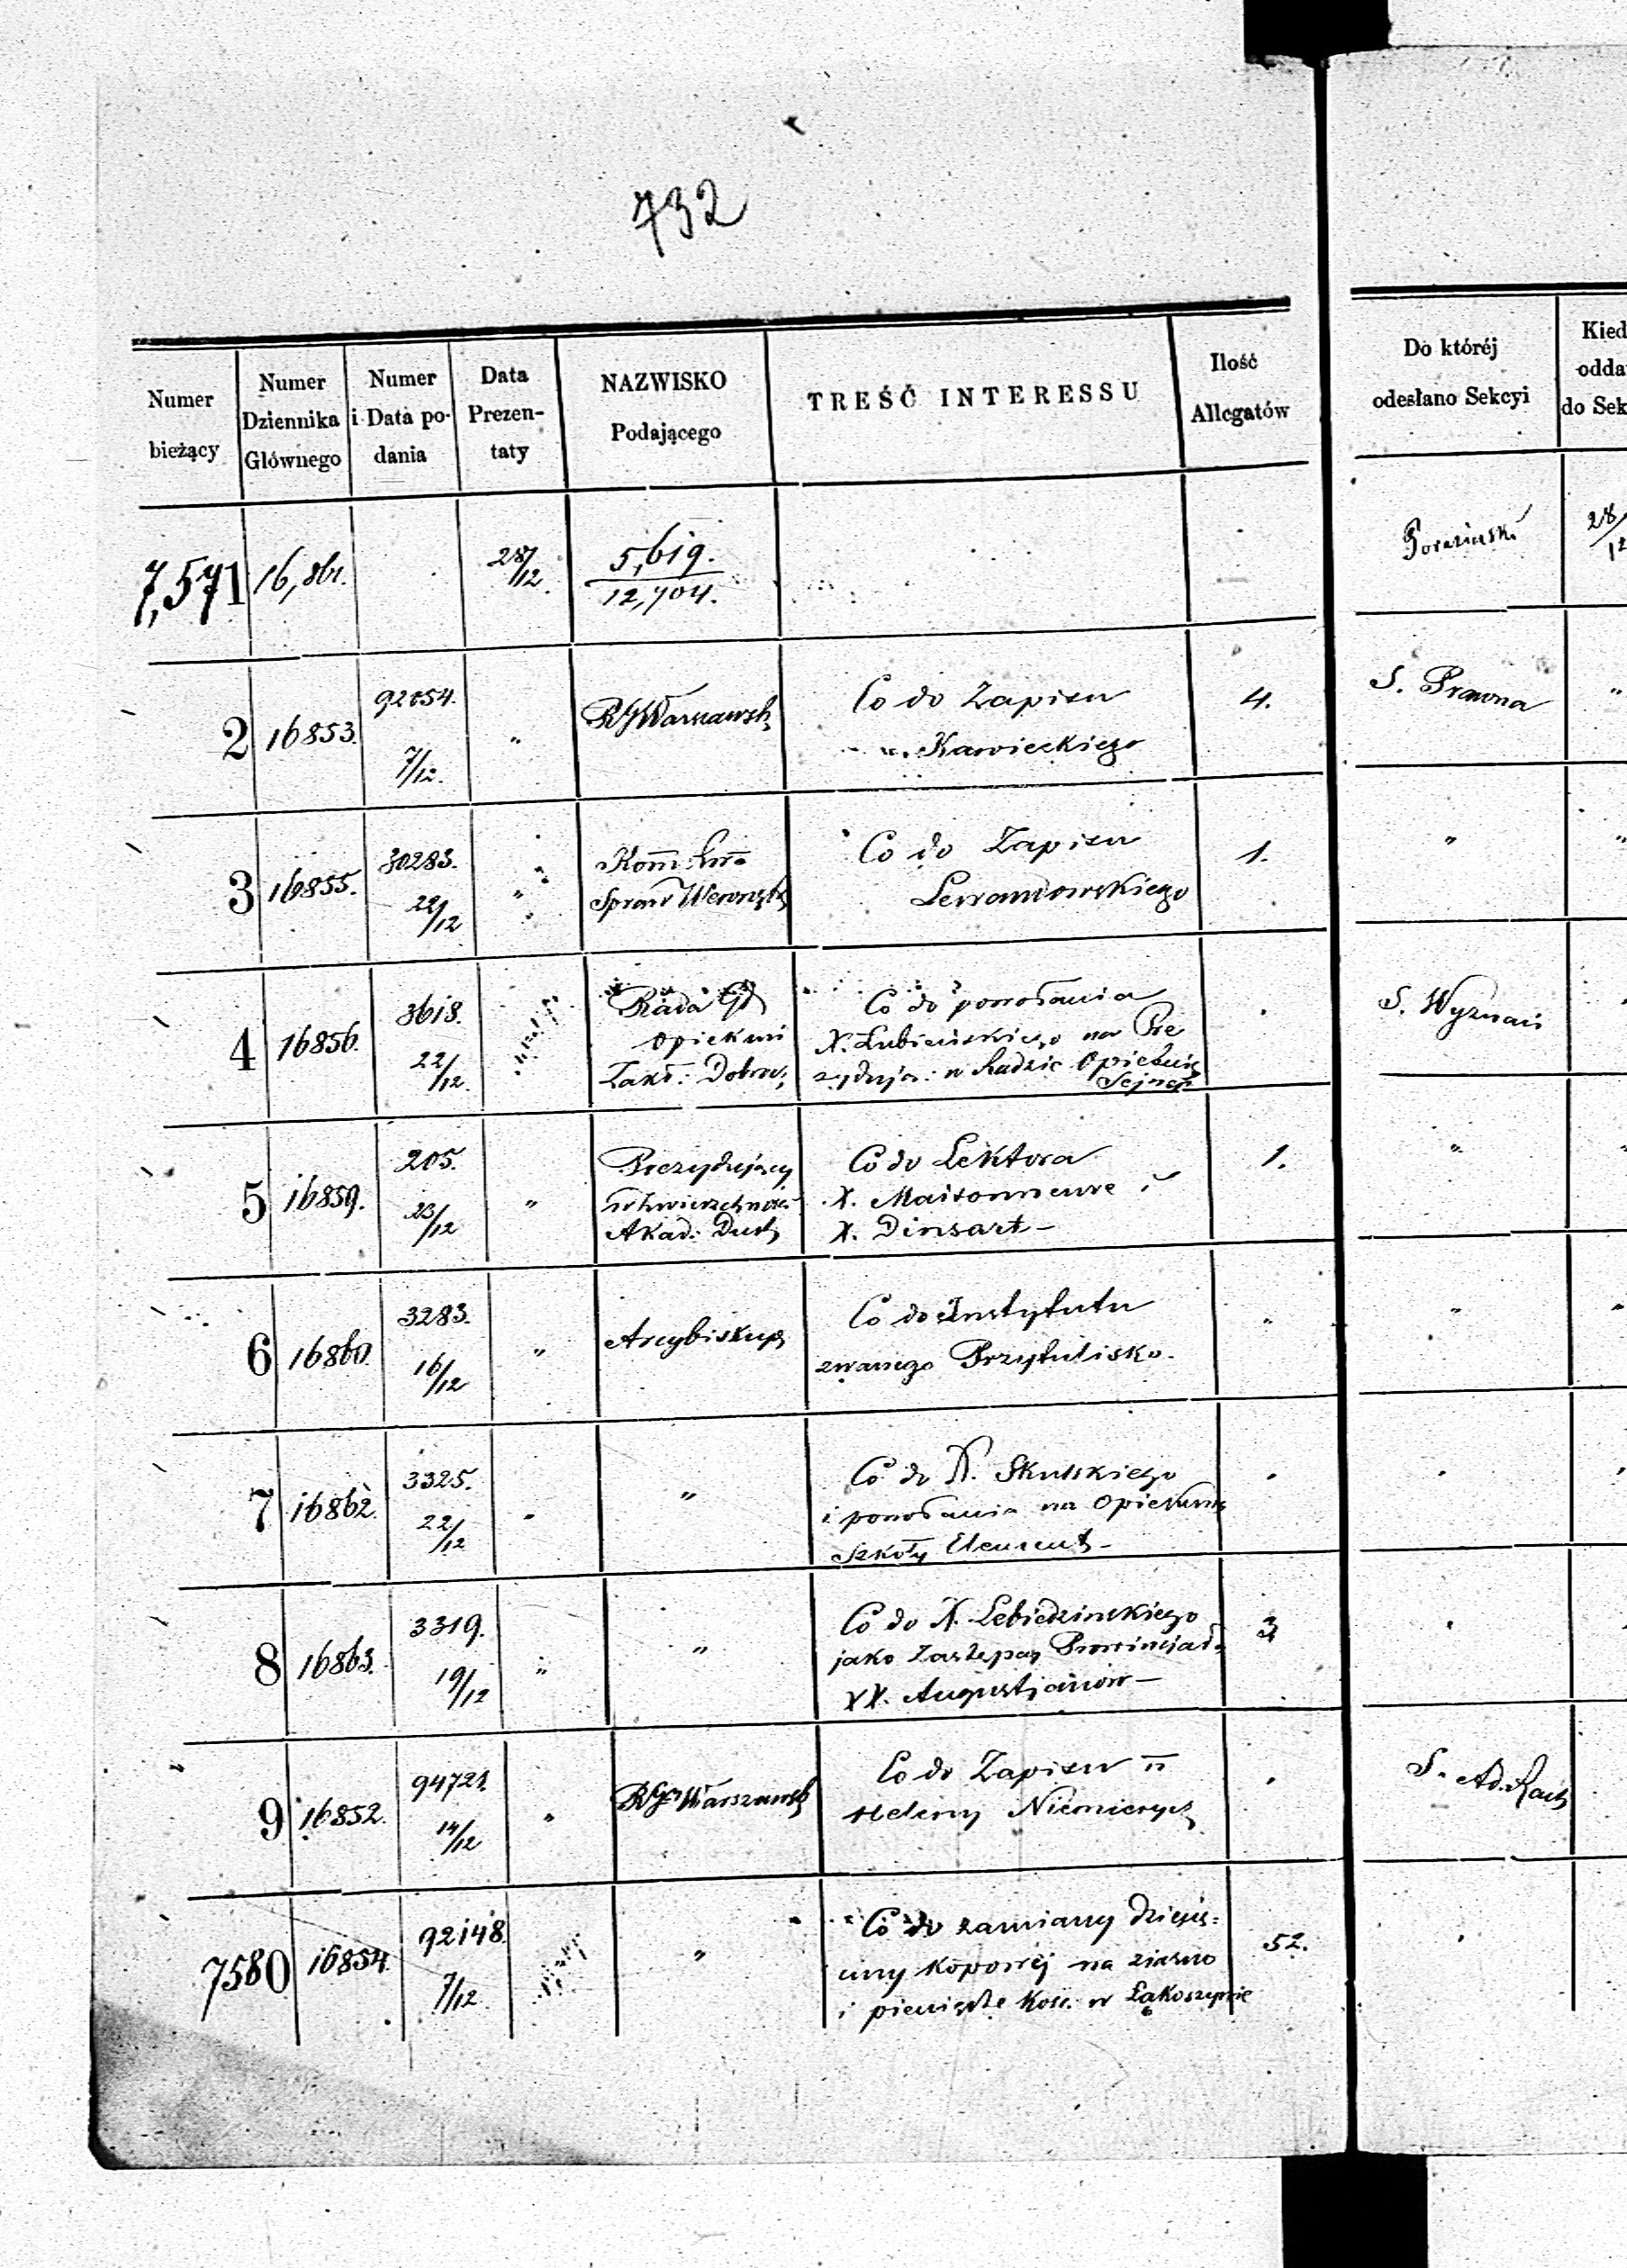 732
Numer bieżący
Numer Dziennika Głównego
Numer i Data podania
Data Prezentaty
NAZWISKO Podającego
TREŚĆ INTERESSU
Ilość Allegatów
Do któréj odesłano Sekcyi
Kied
odda
do Sek
7,571 16,861. 28/12 5,619. 28/12
12,704.
2 16853. 92054. 7/12. " RG Warszawsk Co do Zapisu 4. S. Prawna "
Kawieckiego
3 16855. 30283. 22/12 " Kom: Co do Zapisu 1. " "
Spraw Wewnętz Lewandowskiego
4 16856. 3618. 22/12. Rada Gł Co do powołania S. Wyznań
Opiekuń X. Łubieńskiego na Pre
Zakł: Dobrocz zydują: w Radzie Opiekuńcz
Sejneń
5 16859. 205. 23/12 " Prezydujący Co do Lektora 1. " "
Zwierzchność X. Maisonneuve i
Akad: Duch X. Dinsart –
6 16860. 3283. 16/12 " Arcybiskup Co do Instytutu " " "
zwanego Przytulisko.
7 16862. 3325. 22/12 " " Co do X. Skulskiego
i powołania na Opiekuna
Szkoły Element –
8 16863. 3319. 19/12 " " Co do X. Lebiedzinskiego 3 "
jako Zastępcy Prowincjała
XX. Augustjanów –
9 16852. 94721. 14/12 " RG Warszawsk Co do Zapisu S. Ad. Rach
Heleny Niemierycz
7580 16854. 92148. 7/12 " Co do zamiany Dziesię= 52. "
ciny Kopowéj na ziarno
i pieniądze Kośc. w Łąkoszynie